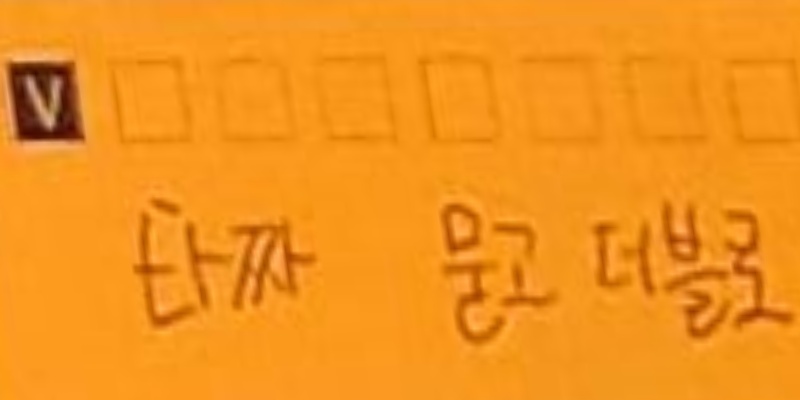 V
타짜 묻고 더블로